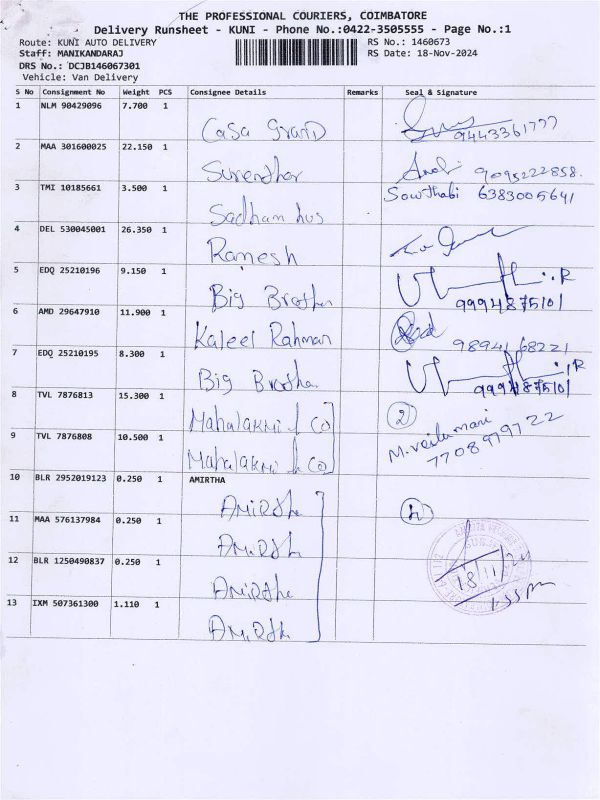 THE PROFESSIONAL COURIERS, COIMBATORE
Delivery Runsheet - KUNI - Phone No.:0422-3505555 - Page No.:1
Route: KUNI AUTO DELIVERY RS No.: 1460673
Staff: MANIKANDARAJ RS Date: 18-Nov-2024
DRS No.: DCJB146067301
Vehicle: Van Delivery
S No Consignment No Weight PCS Consignee Details Remarks Seal & Signature
1 NLM 90429096 7.700 1
Casa Grand 9443361777
2 MAA 301600025 22.150 1
Surendhar 9095222858.
3 TMI 10185661 3.500 1 Sowthabi 6383005641
Sadham hus
4 DEL 530045001 26.350 1
Ramesh
5 EDQ 25210196 9.150 1
Big Brother 9994875101
6 AMD 29647910 11.900 1
Kaleel Rahman 98941 68221
7 EDQ 25210195 8.300 1
Big Brother 9994875101
8 TVL 7876813 15.300 1
Mahalakmi & Co 2
9 TVL 7876808 10.500 1 M. Veilumani
Mahalakmi & Co 7708979722
10 BLR 2952019123 0.250 1 AMIRTHA
Amirtha 4
11 MAA 576137984 0.250 1
Amirtha
12 BLR 1250490837 0.250 1 18/11/24
Amirtha 1.55pm
13 IXM 507361300 1.110 1
Amirtha